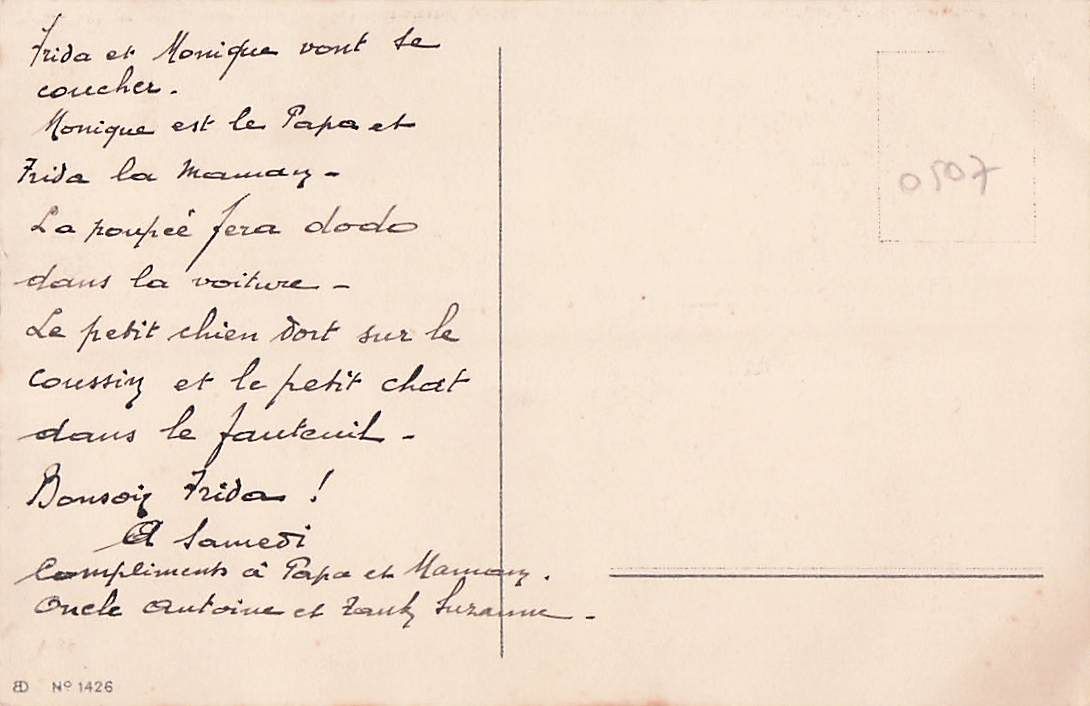 Frida et Monique vont se
coucher.
Monique est le Papa et
Frida la Maman -
La poupée fera dodo
dans la voiture -
Le petit chien dort sur le
coussin et le petit chat
dans le fauteuil -
Bonsoir Frida !
A Samedi
Compliments à Papa et Maman.
Oncle Antoine et Tante Suzanne -
0507
BD Nº 1426